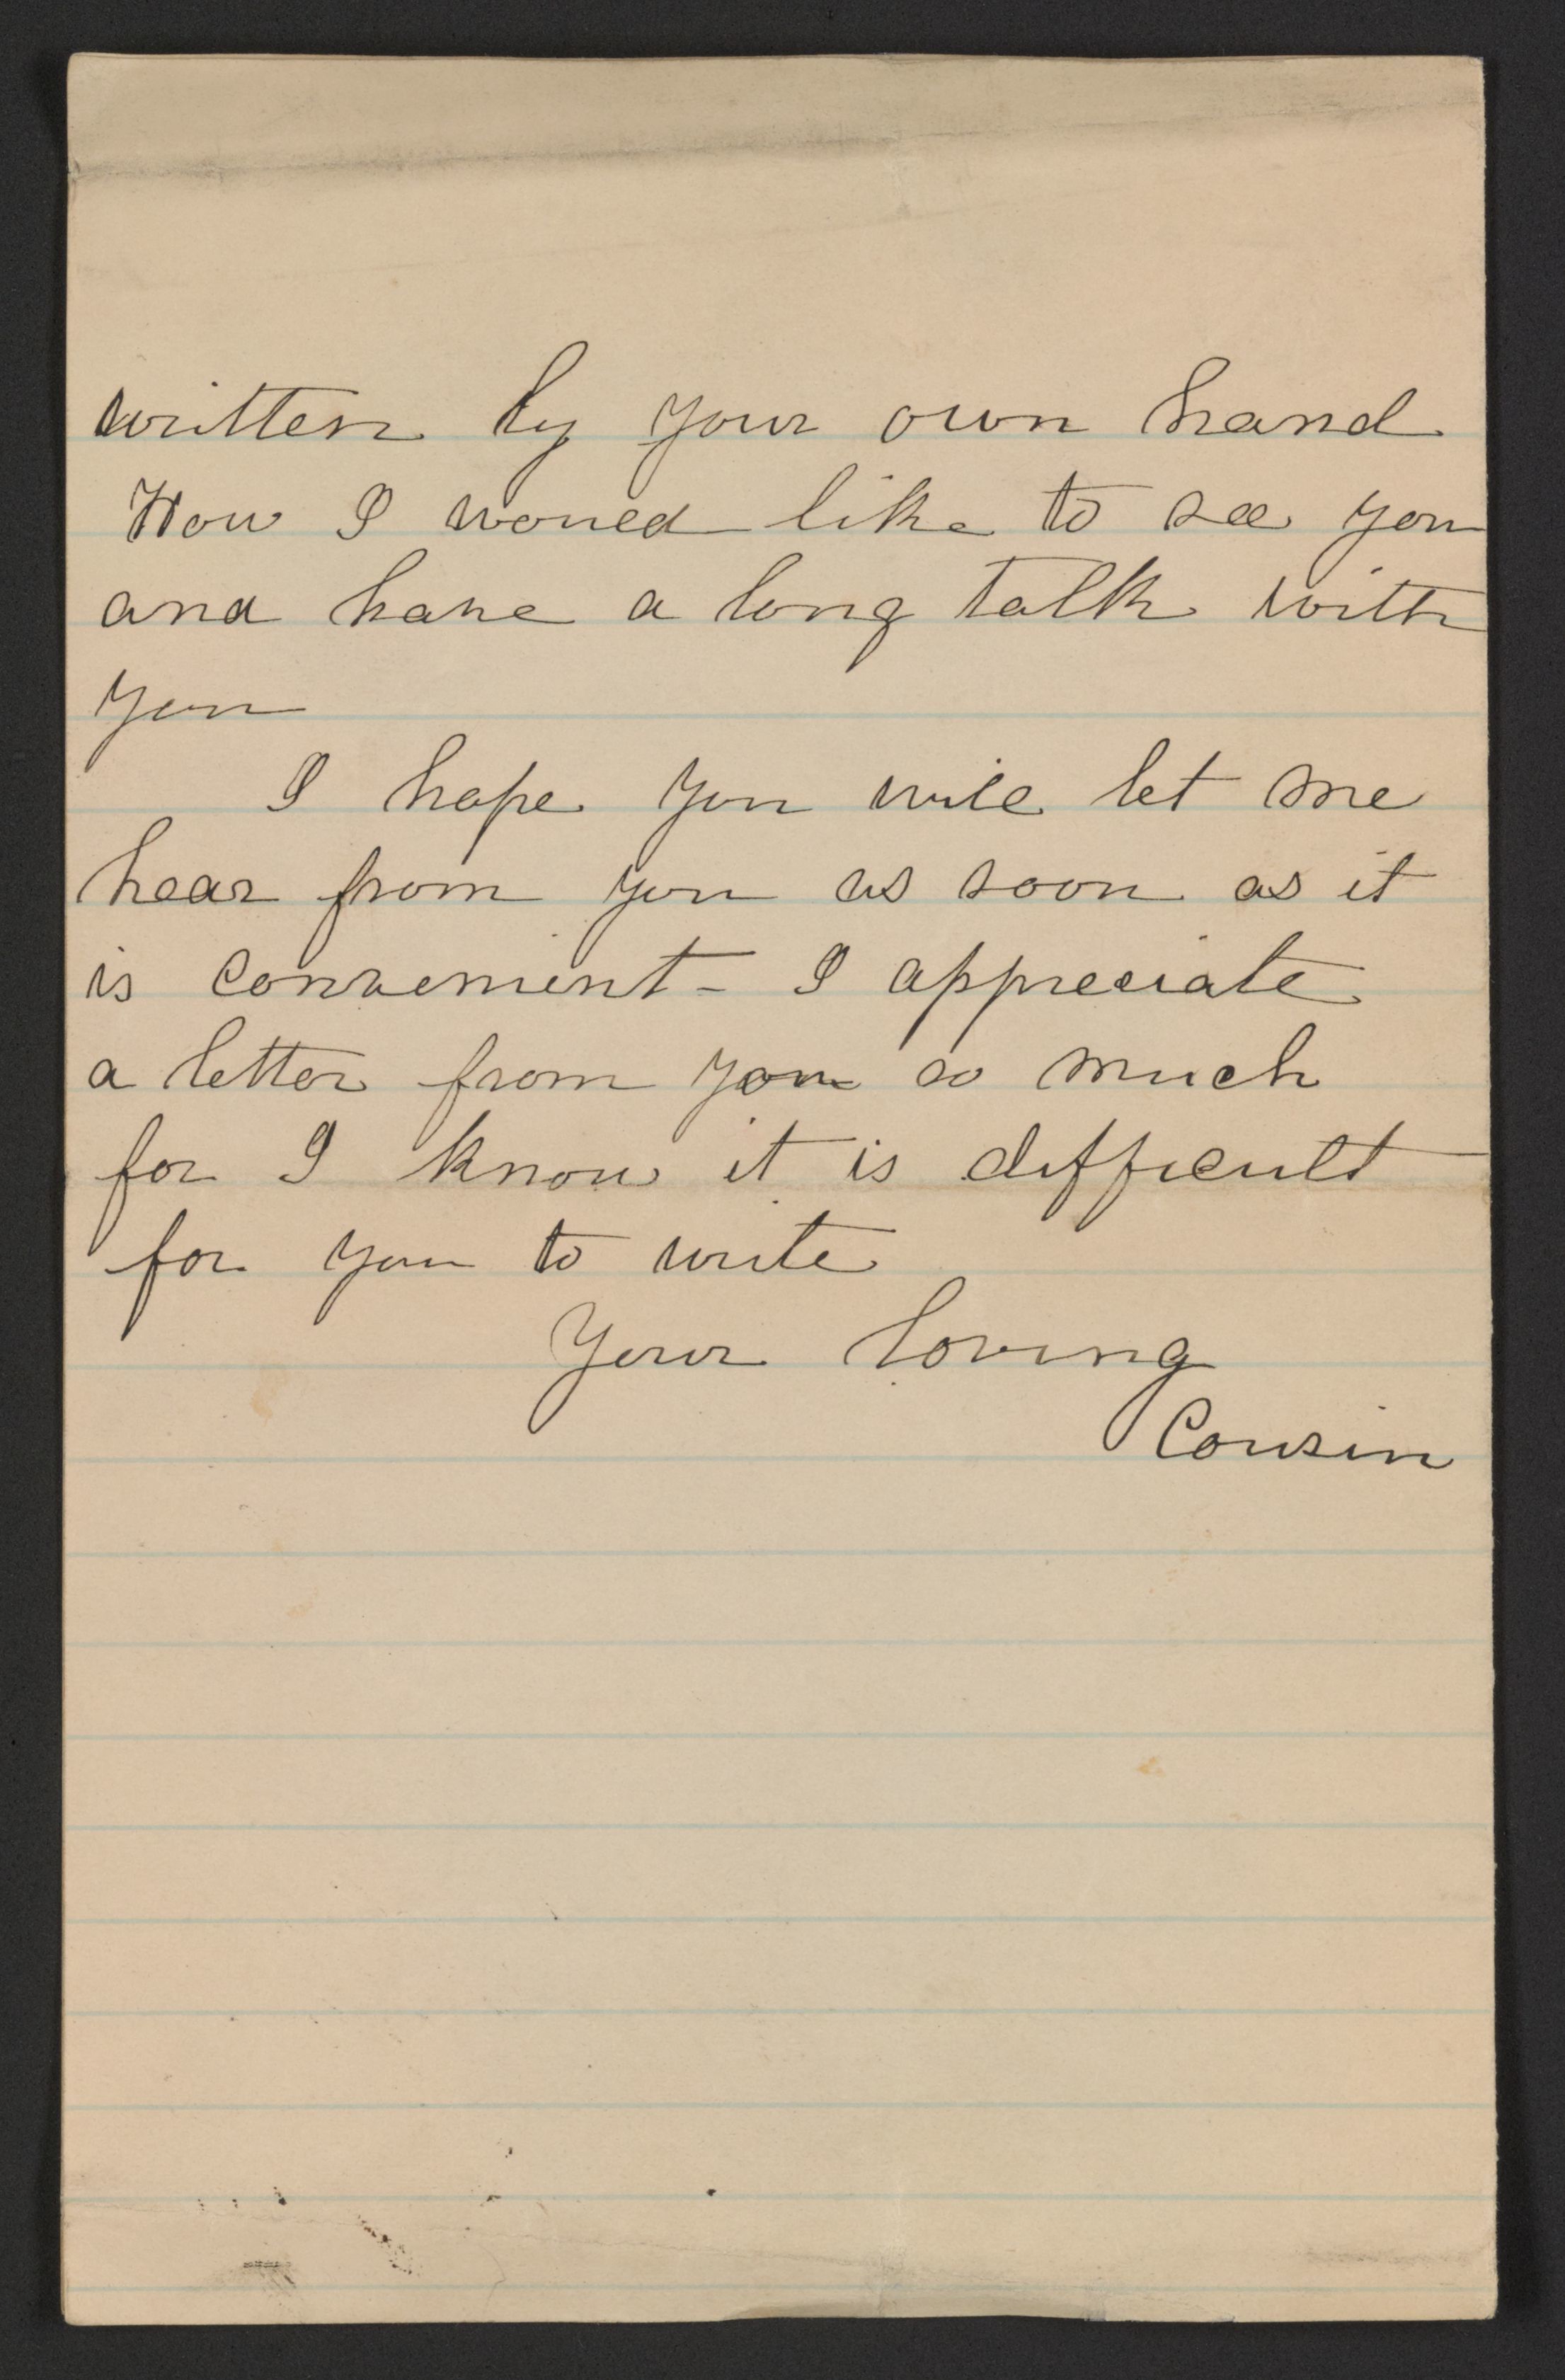 written by your own hand
How I would like to see you
and have a long talk with
you
I hope you will let me
hear from you as soon as it
is convenient - I appreciate
a letter from you so much
for I know it is difficult
for you to write
Your loving
Cousin